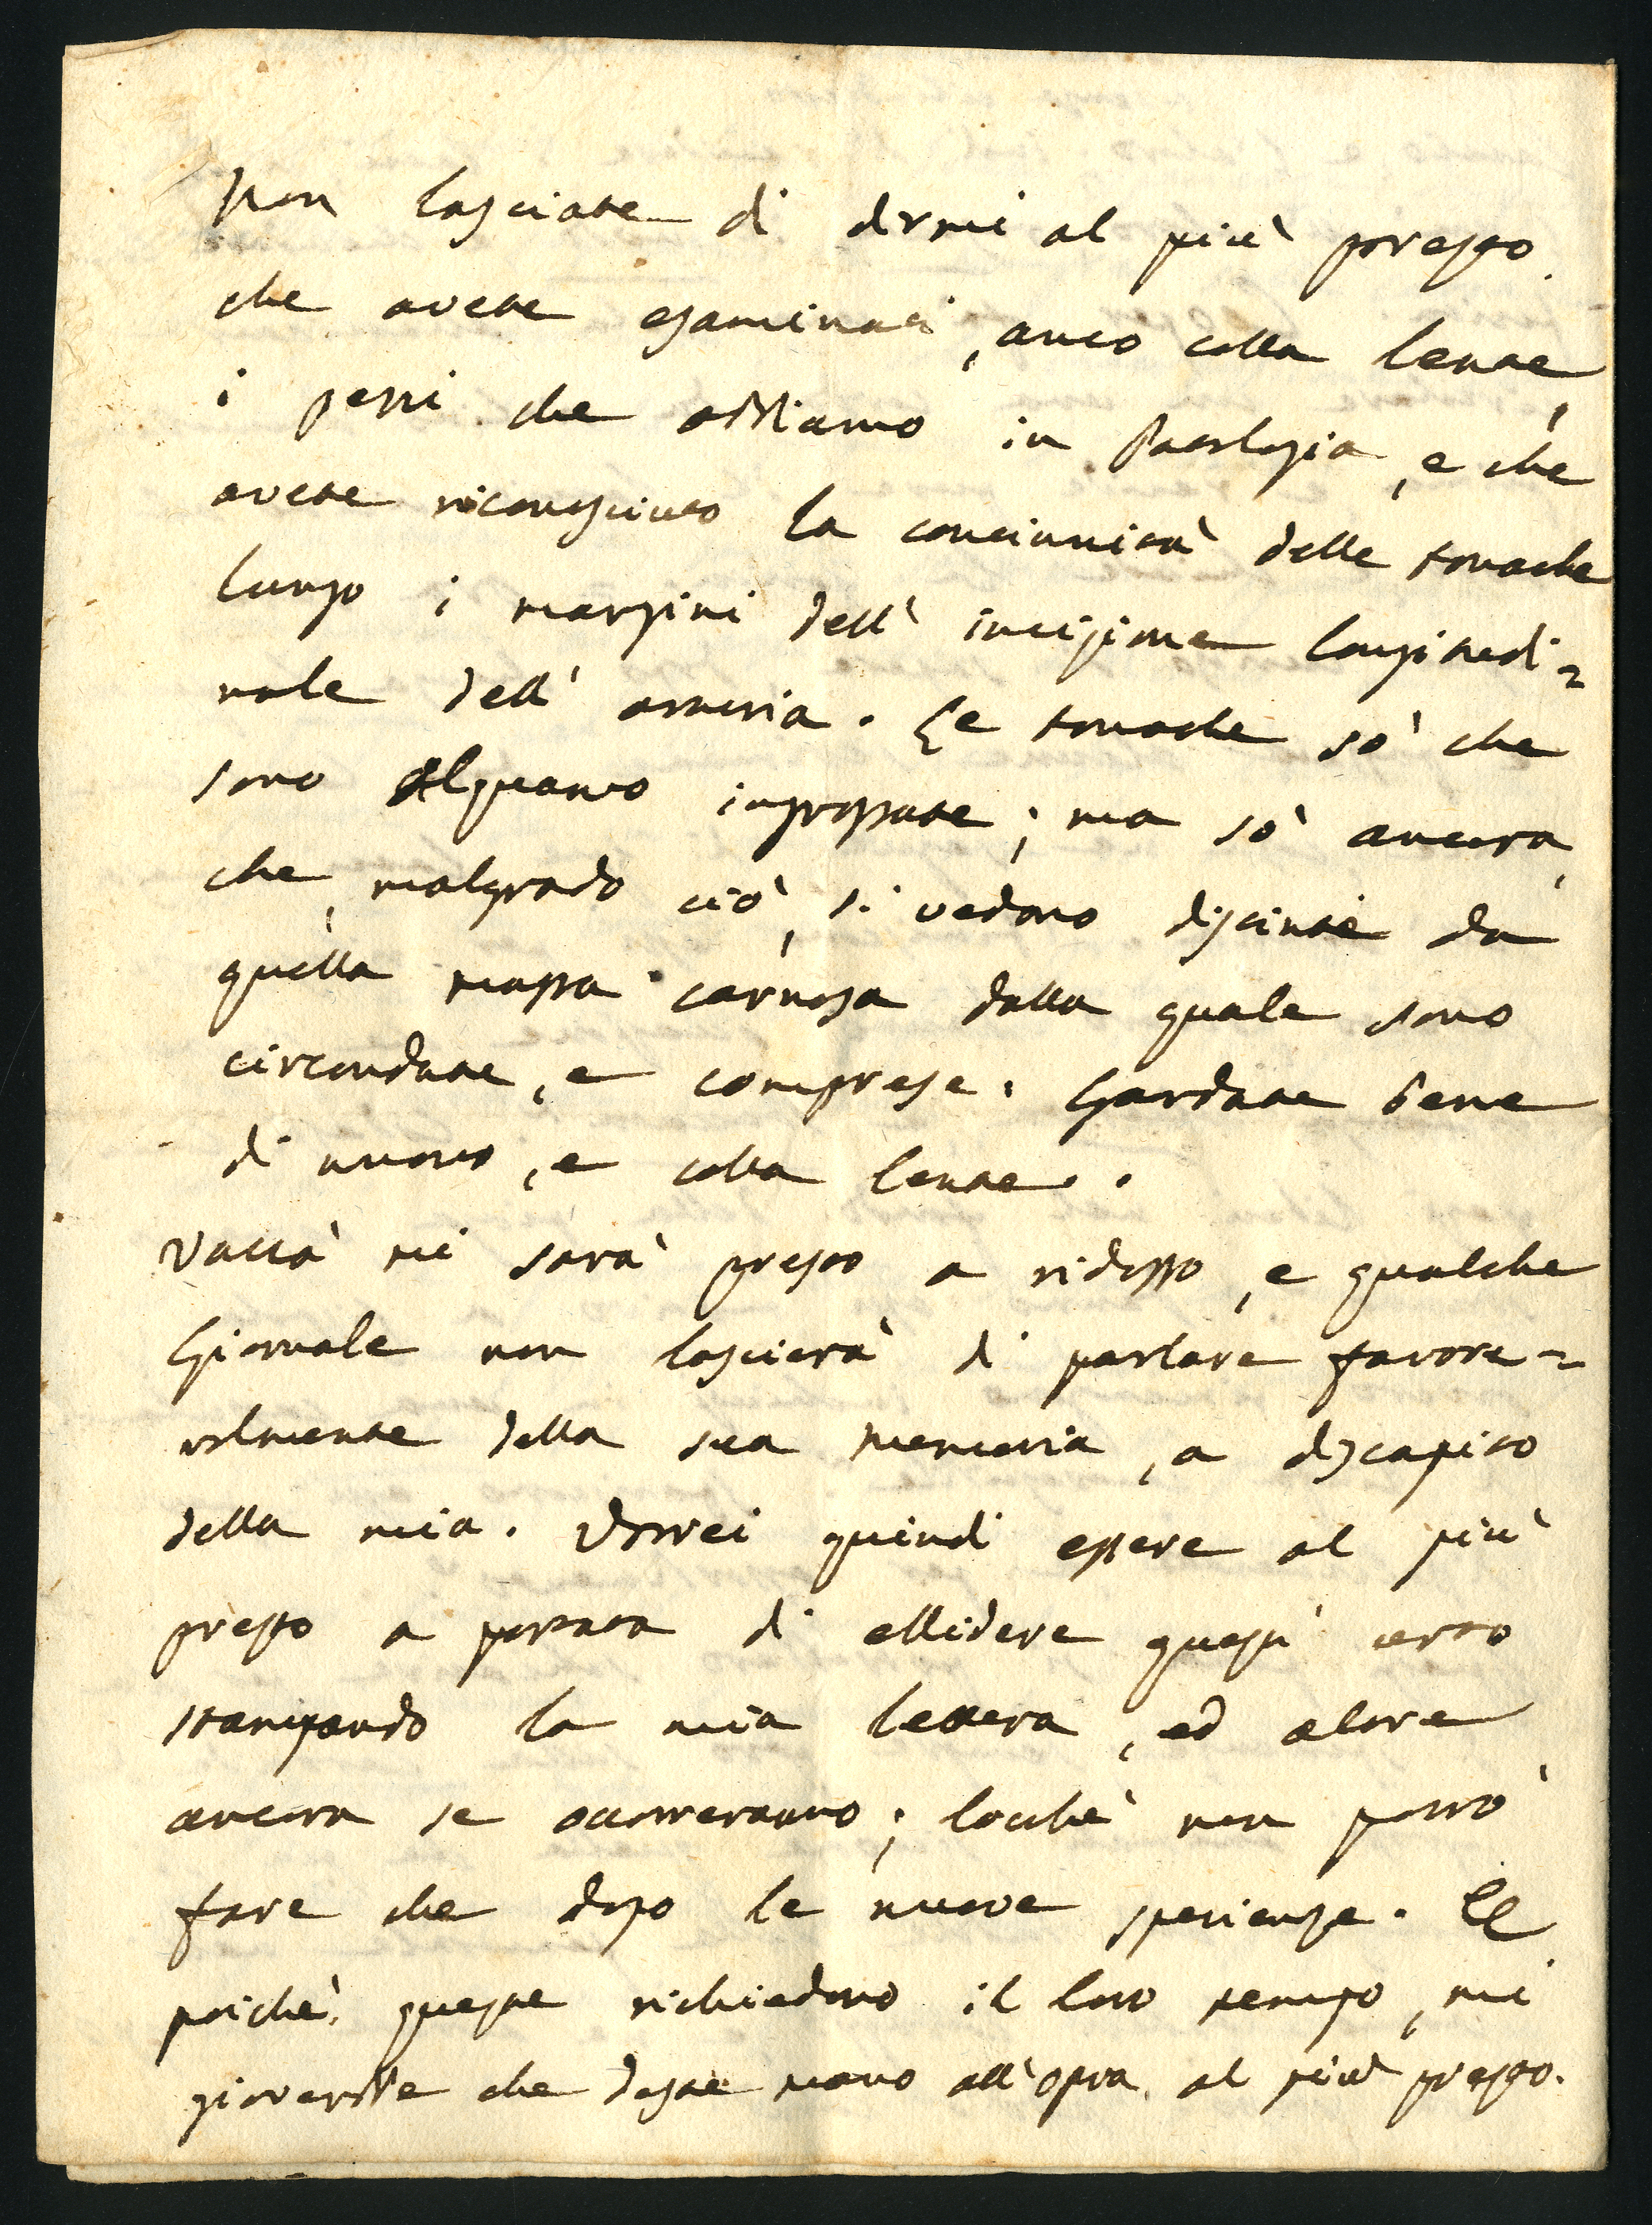 Non lasciate di dirmi al più presto
che avete esaminati, anco colla lente,
i pezzi che abbiamo in Patologia, e che
avete riconosciuto la continuità delle tonache
lungo i margini dell' incisione longitudi=
nale dell' arteria. Le tonache sò che
sono alquanto ingrossate; ma sò ancora,
che, malgrado ciò, si vedono distinte da
quella massa carnosa dalla quale sono
circondate, e comprese. Guardate bene
di nuovo, e colla lente..
Vaccà mi sarà presto a ridosso, e qualche
Giornale non lascierà di parlare favore=
volmente della sua memoria, a discapito
della mia. Vorrei quindi essere al più
presto a portata di ellidere quest' urto
stampando la mia lettera, ed altre
ancora se occorreranno; locchè non potrò
fare che dopo le nuove sperienze. E
poichè queste richiedono il loro tempo, mi
gioverebbe che daste mano all'opra al più presto.